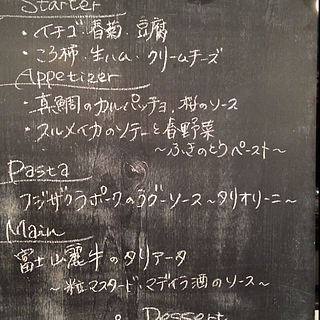 Starter
・イチゴ・春菊・豆腐
・ころ柿・生ハム・クリームチーズ
Appetizer
・真鯛のカルパッチョ、桜のソース
・スルメイカのソテーと春野菜
～ふきのとうペースト～
Pasta
フジザクラポークのラグーソース～タリオリーニ～
Main
富士山麓牛のタリアータ
～粒マスタード・マデイラ酒のソース～
Dessert